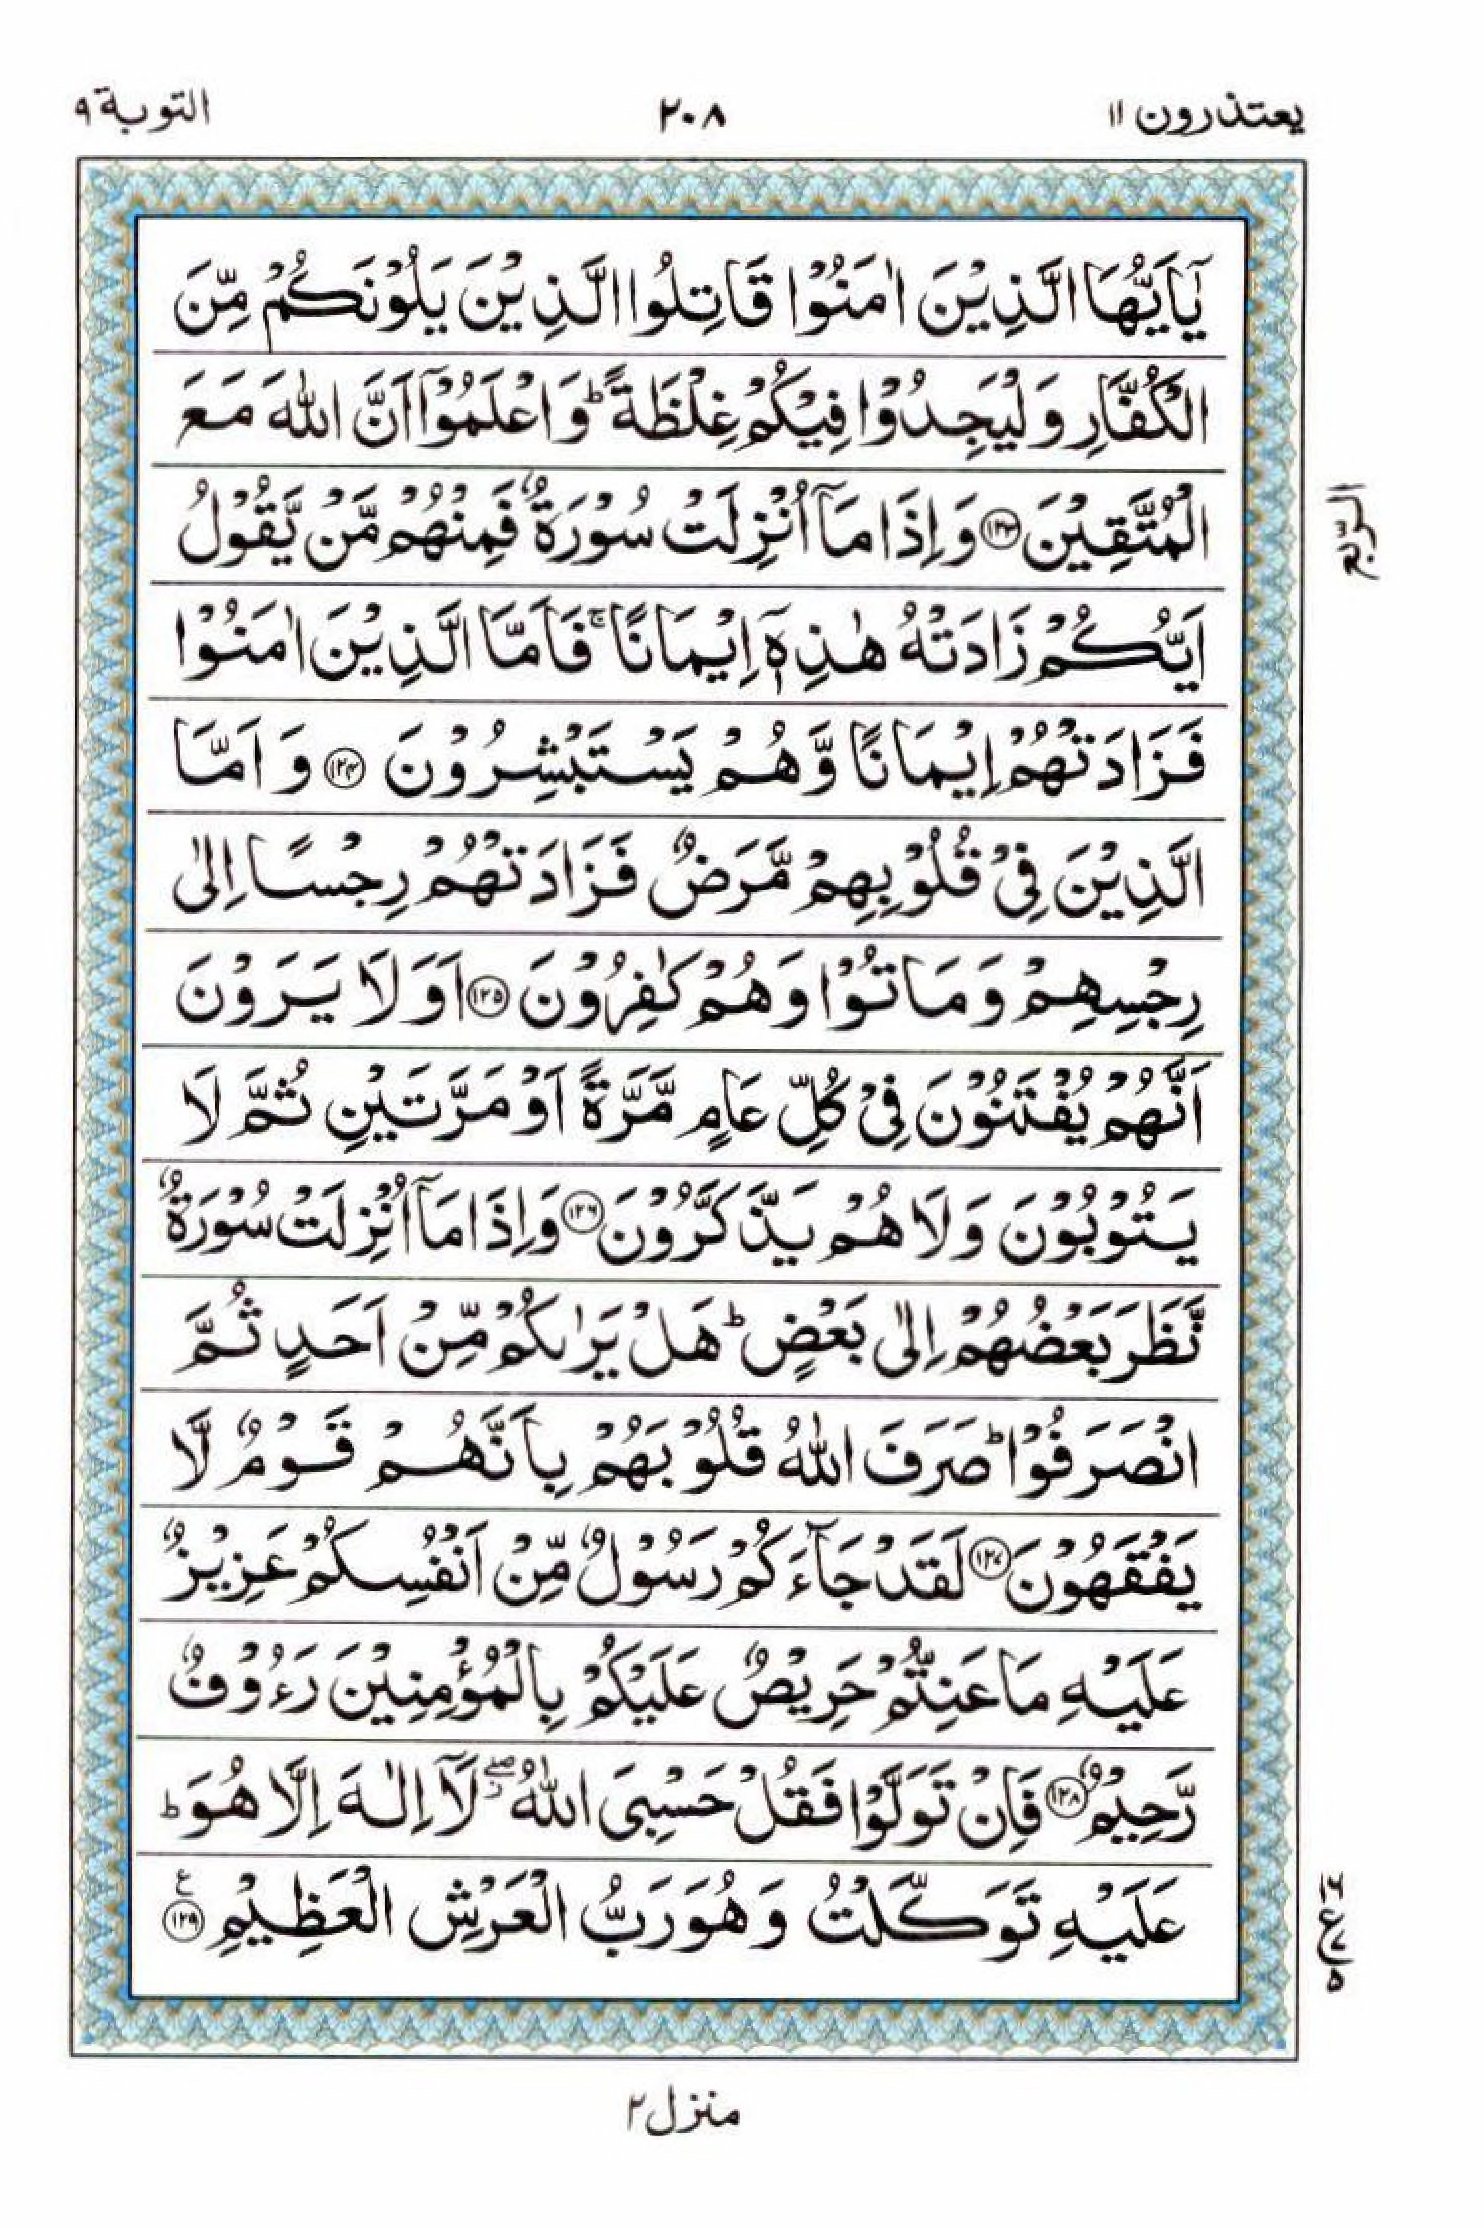 يعتذرون ١١ ٢٠٨ التوبة ٩
يٰۤاَيُّهَا الَّذِيْنَ اٰمَنُوْا قَاتِلُوا الَّذِيْنَ يَلُوْنَكُمْ مِّنَ
الْكُفَّارِ وَلْيَجِدُوْا فِيْكُمْ غِلْظَةً ؕ وَاعْلَمُوْۤا اَنَّ اللّٰهَ مَعَ
الْمُتَّقِيْنَ ﴿١٢٣﴾ وَاِذَا مَاۤ اُنْزِلَتْ سُوْرَةٌ فَمِنْهُمْ مَّنْ يَّقُوْلُ
الربع
اَيُّكُمْ زَادَتْهُ هٰذِهٖۤ اِيْمَانًا ۚ فَاَمَّا الَّذِيْنَ اٰمَنُوْا
فَزَادَتْهُمْ اِيْمَانًا وَّهُمْ يَسْتَبْشِرُوْنَ ﴿١٢٤﴾ وَاَمَّا
الَّذِيْنَ فِيْ قُلُوْبِهِمْ مَّرَضٌ فَزَادَتْهُمْ رِجْسًا اِلٰى
رِجْسِهِمْ وَمَاتُوْا وَهُمْ كٰفِرُوْنَ ﴿١٢٥﴾ اَوَلَا يَرَوْنَ
اَنَّهُمْ يُفْتَنُوْنَ فِيْ كُلِّ عَامٍ مَّرَّةً اَوْ مَرَّتَيْنِ ثُمَّ لَا
يَتُوْبُوْنَ وَلَا هُمْ يَذَّكَّرُوْنَ ﴿١٢٦﴾ وَاِذَا مَاۤ اُنْزِلَتْ سُوْرَةٌ
نَّظَرَ بَعْضُهُمْ اِلٰى بَعْضٍ ؕ هَلْ يَرٰىكُمْ مِّنْ اَحَدٍ ثُمَّ
انْصَرَفُوْا ؕ صَرَفَ اللّٰهُ قُلُوْبَهُمْ بِاَنَّهُمْ قَوْمٌ لَّا
يَفْقَهُوْنَ ﴿١٢٧﴾ لَقَدْ جَآءَكُمْ رَسُوْلٌ مِّنْ اَنْفُسِكُمْ عَزِيْزٌ
عَلَيْهِ مَا عَنِتُّمْ حَرِيْصٌ عَلَيْكُمْ بِالْمُؤْمِنِيْنَ رَءُوْفٌ
رَّحِيْمٌ ﴿١٢٨﴾ فَاِنْ تَوَلَّوْا فَقُلْ حَسْبِيَ اللّٰهُ ۖ لَاۤ اِلٰهَ اِلَّا هُوَ ؕ
عَلَيْهِ تَوَكَّلْتُ وَهُوَ رَبُّ الْعَرْشِ الْعَظِيْمِ ﴿١٢٩﴾ ع
منزل ٢